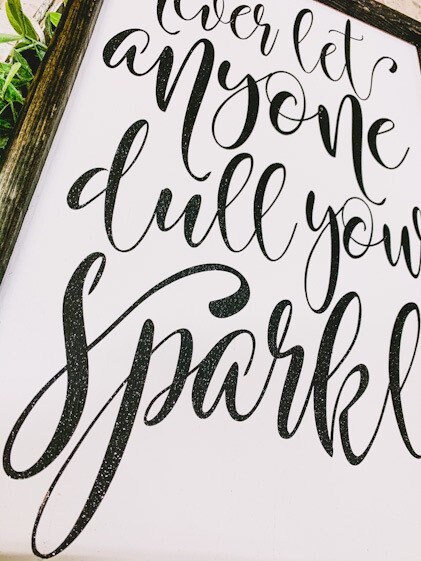 Never let
anyone
dull your
Sparkl